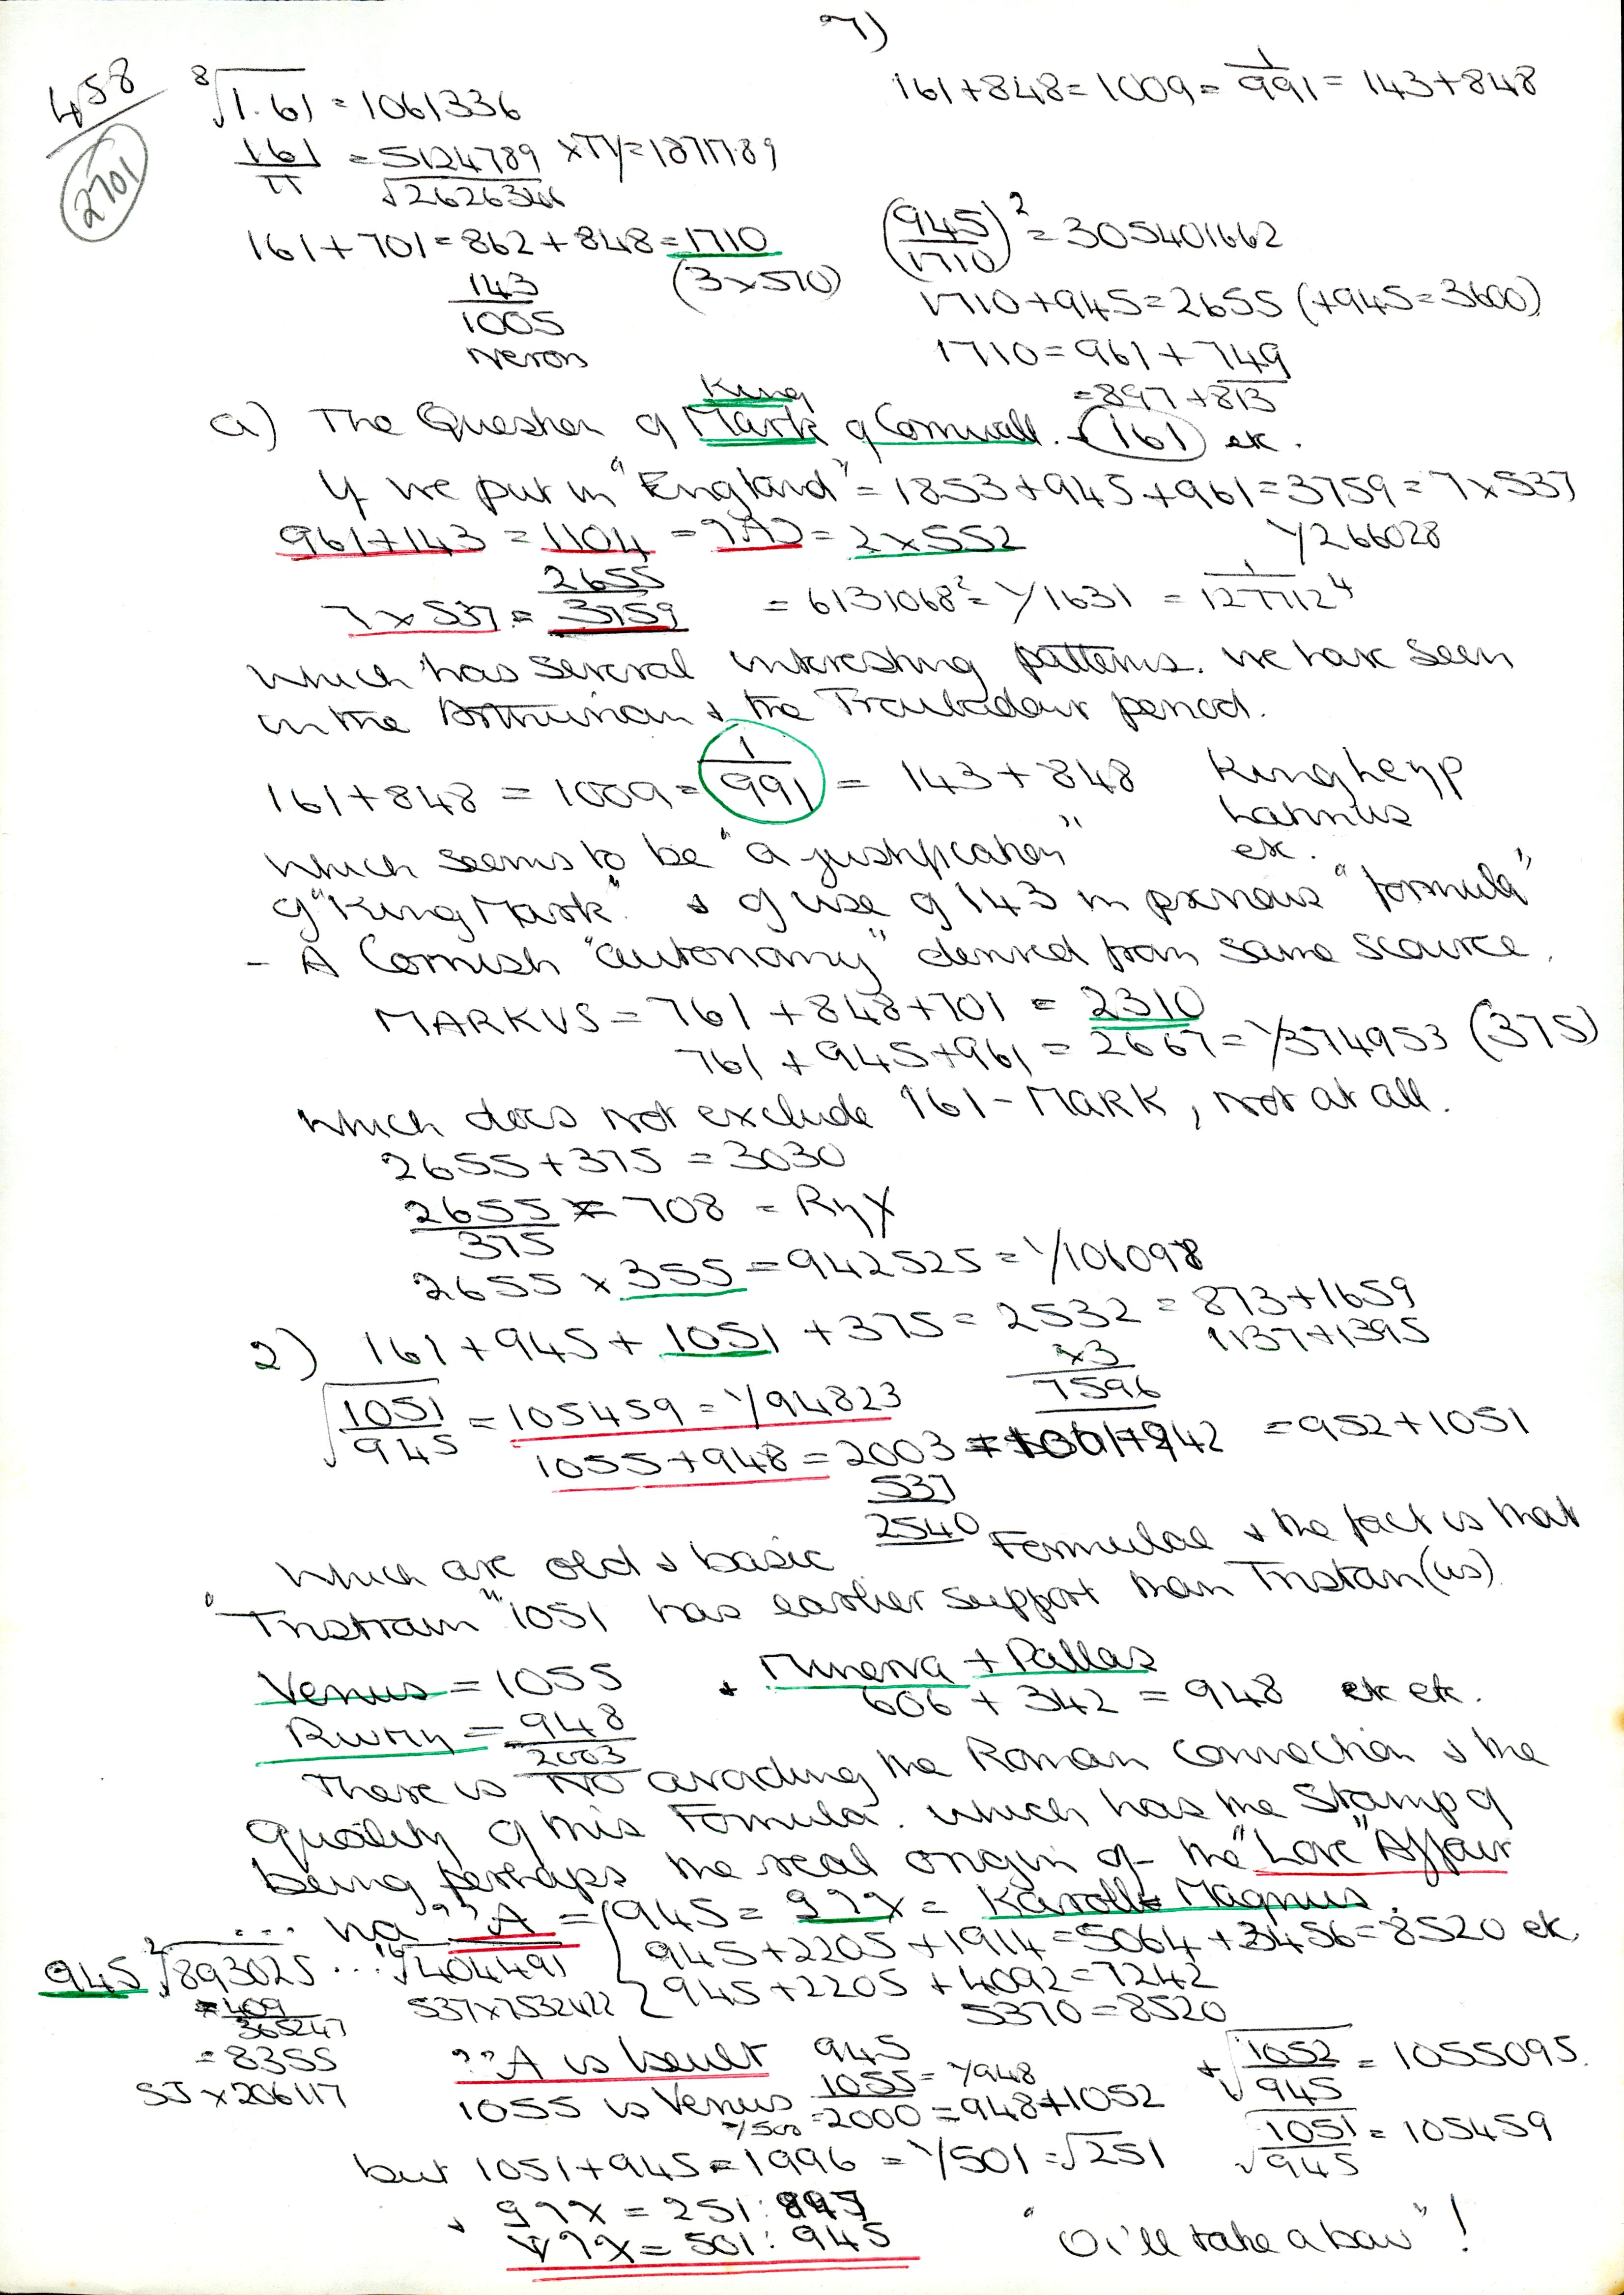 7)
458
2701
⁸√1.61 = 1061336
161+848 = 1009 = 1/991 = 143+848
161/π = 5124789
√2626346
161+701 = 862+848 = 1710
(3×570)
143
1005
Neron
(945/1710)² = 305401662
1710+945 = 2655 (+945 = 3600)
1710 = 961 + 749
= 897 + 813
a) The Question of King Mark of Cornwall. (161) etc.
If we put in "England" = 1853+945+961 = 3759 = 7×537
1/266028
961+143 = 1104 = = 2×552
2655
7×537 = 3759 = 6131068² = 1/1631 = 1/127712⁴
which has several interesting patterns. We have seen
in the Arthurian & the Troubadour period.
161+848 = 1009 = 1/991 = 143+848
etc.
which seems to be "a justification"
of "King Mark" & of use of 143 in previous "formula"
- A Cornish "autonomy" derived from same scource.
MARKVS = 761+848+701 = 2310
761+945+961 = 2667 = 1/374953 (375)
which does not exclude 161-MARK, not at all.
2655+375 = 3030
2655/375 = 708 = RηX
2655 × 355 = 942525 = 1/106098
2) 161+945+1051+375 = 2532 = 873+1659
1137+1395
×3
7596
√1051/945 = 105459 = 1/94823
1055+948 = 2003 = 952+1051
537
2540
which are old & basic Formulae & the fact is that
"Tristram" 1051 has earlier support than Tristan(us)
Venus = 1055 + Minerva + Pallas
606 + 342 = 948 etc etc.
= 948
2003
There is NO avoiding the Roman Connection & the
quality of this Formula. which has the Stamp of
being perhaps the real origin of the "Love" Affair
945 = = Karolle Magnus.
945+2205+1914 = 5064+3456 = 8520 etc.
945 ²√893025 ... √404491
945+2205+4092 = 7242
409
365247
537×7532422
5370 = 8520
= 8355
55×206117
??A is built 945
1055 is Venus 1055 = 1/948
1/500 = 2000 = 948+1052
+√1052/945 = 1055095
√1051/945 = 105459
but 1051+945 = 1996 = 1/501 = √251
= 251 : 945
= 501 : 945
"Oi'll take a bow"!